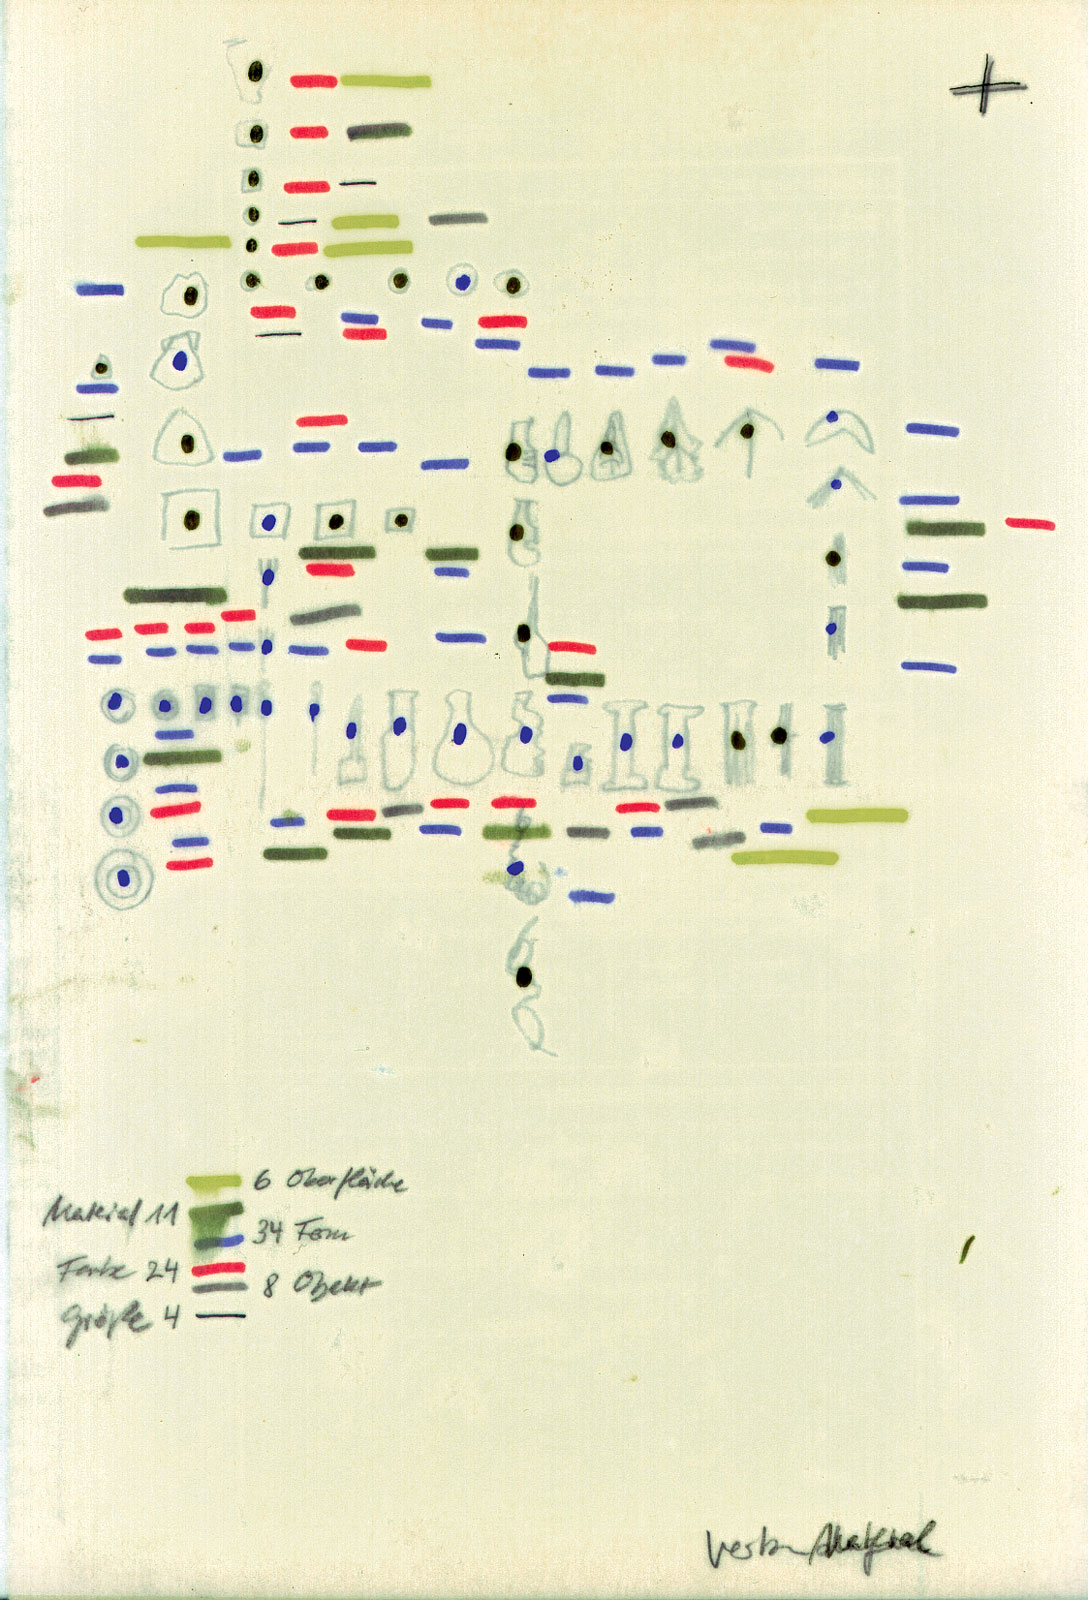 6 Oberfläche
Material 11
34 Form
Farbe 24
8 Objekt
Größe 4
Material